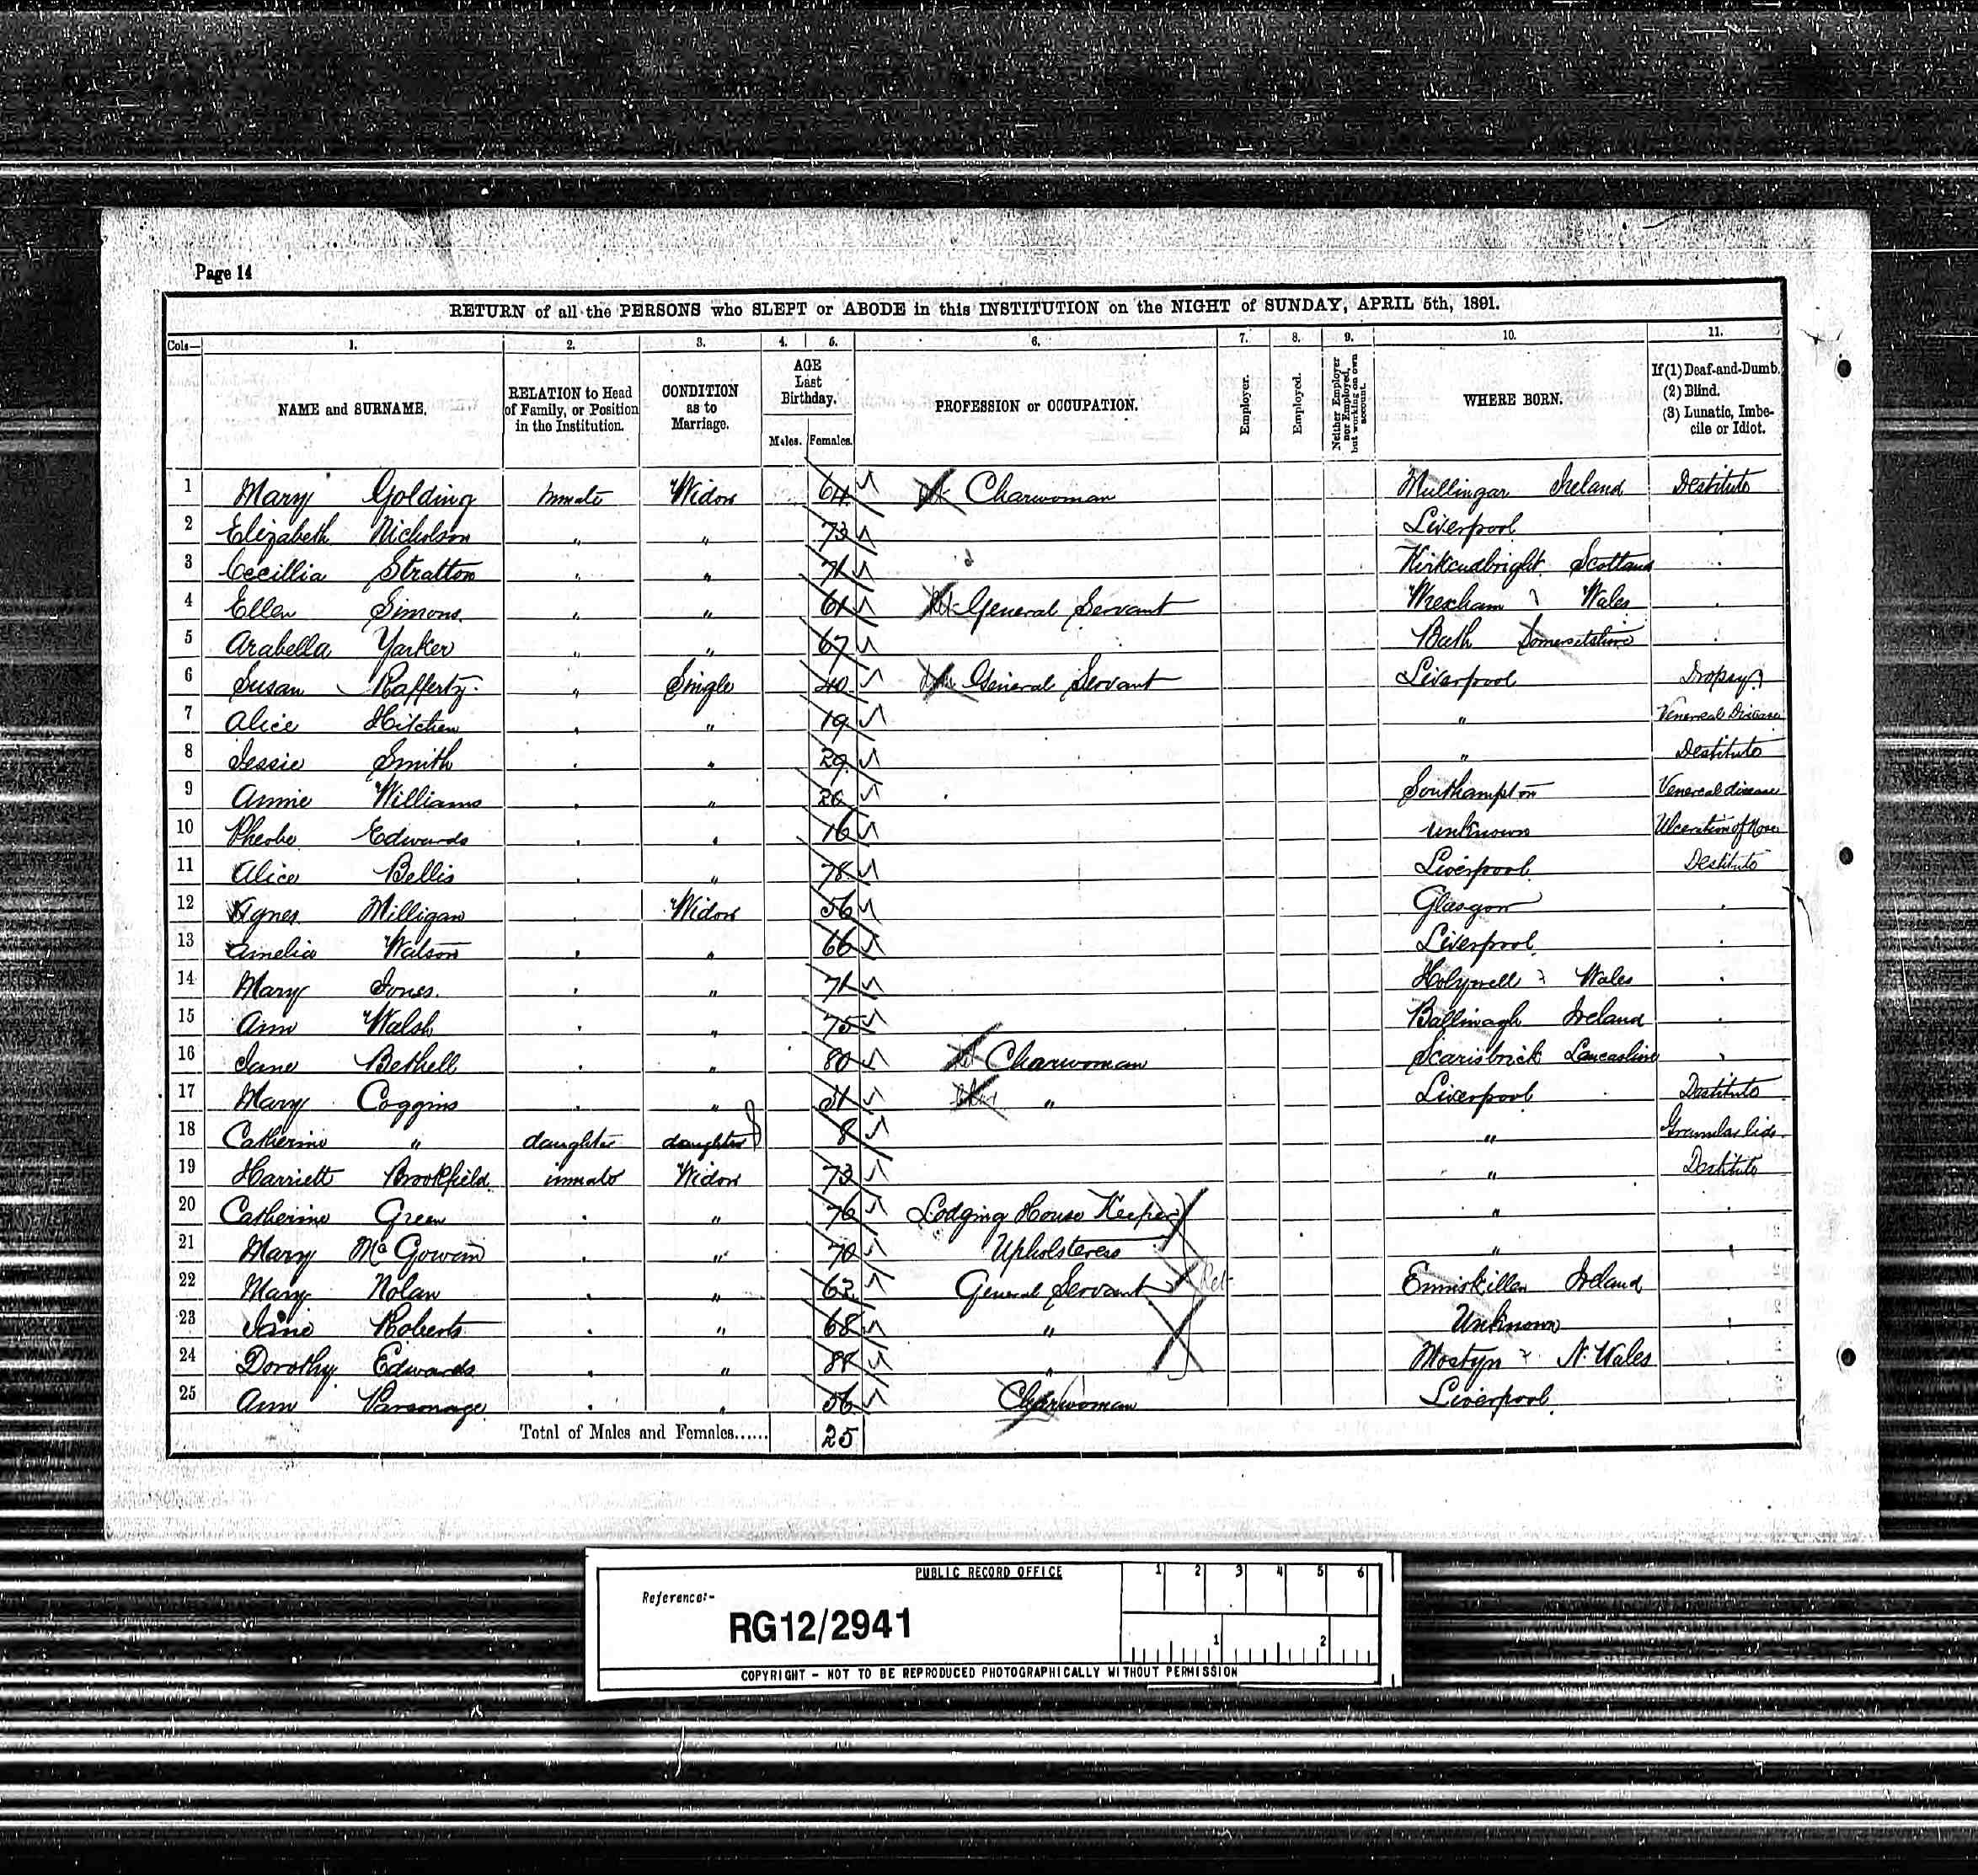 Page 14
RETURN of all the PERSONS who SLEPT or ABODE in this INSTITUTION on the NIGHT of SUNDAY, APRIL 5th, 1891.
Cols— 1. 2. 3. 4. 5. 6. 7. 8. 9. 10. 11.
NAME and SURNAME.
RELATION to Head of Family, or Position in the Institution.
CONDITION as to Marriage.
AGE Last Birthday.
Males. Females.
PROFESSION or OCCUPATION.
Employer.
Employed.
Neither Employer nor Employed, but working on own account.
WHERE BORN.
If (1) Deaf-and-Dumb.
(2) Blind.
(3) Lunatic, Imbecile or Idiot.
1 Mary Golding Inmate Widow 64 Charwoman Mullingar Ireland Destitute
2 Elizabeth Nicholson " " 73 Liverpool "
3 Cecillia Stratton " " 71 Kirkcudbright Scotland "
4 Ellen Simons " " 61 Ret General Servant Wrexham Wales "
5 Arabella Yarker " " 67 Bath Somersetshire "
6 Susan Rafferty " Single 40 General Servant Liverpool Dropsy
7 Alice Hitchen " " 19 " Venereal Disease
8 Jessie Smith " " 29 " Destitute
9 Annie Williams " " 26 Southampton Venereal disease
10 Pheobe Edwards " " 16 unknown Ulceration of Nose
11 Alice Bellis " " 78 Liverpool Destitute
12 Agnes Milligan " Widow 56 Glasgow "
13 Amelia Watson " " 66 Liverpool "
14 Mary Jones " " 71 Holywell Wales "
15 Ann Walsh " " 75 Ballinagh Ireland "
16 Jane Bethell " " 80 Ret Charwoman Scarisbrick Lancashire "
17 Mary Coggins " " 31 " Liverpool Destitute
18 Catherine " daughter daughter 8 " Granular lids
19 Harriett Brookfield inmate Widow 73 " Destitute
20 Catherine Green " " 76 Lodging House Keeper " "
21 Mary McGowan " " 70 Upholsteress " "
22 Mary Nolan " " 62 General Servant Ret Enniskillen Ireland "
23 Jane Roberts " " 68 " Unknown "
24 Dorothy Edwards " " 88 " Mostyn N. Wales "
25 Ann Parsonage " " 56 Charwoman Liverpool "
Total of Males and Females...... 25
PUBLIC RECORD OFFICE
1 2 3 4 5 6
Reference:-
RG12/2941
1 2
COPYRIGHT - NOT TO BE REPRODUCED PHOTOGRAPHICALLY WITHOUT PERMISSION